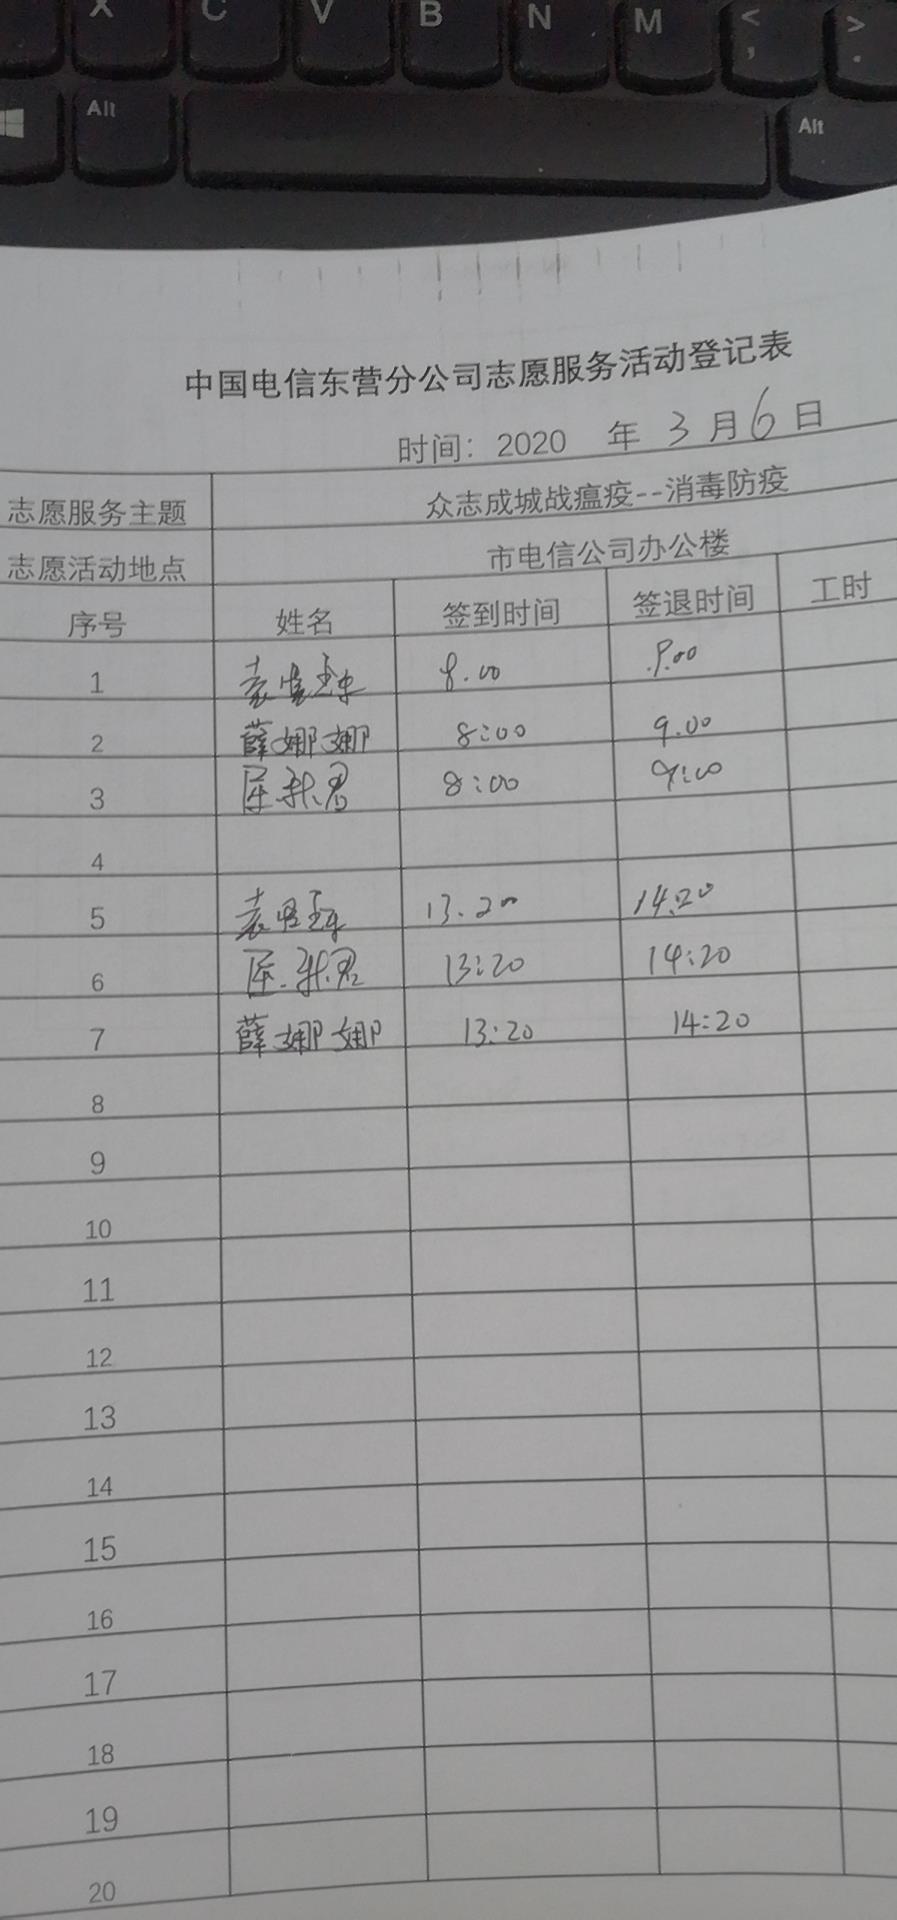 X C V B N M < ,  > .
Alt Alt
中国电信东营分公司志愿服务活动登记表
时间：2020 年 3 月 6 日
志愿服务主题 众志成城战瘟疫--消毒防疫
志愿活动地点 市电信公司办公楼
序号 姓名 签到时间 签退时间 工时
1 8.00 9.00
2 薛娜娜 8:00 9.00
3 8:00 9:00
4
5 13.20 14:20
6 13:20 14:20
7 薛娜娜 13:20 14:20
8
9
10
11
12
13
14
15
16
17
18
19
20